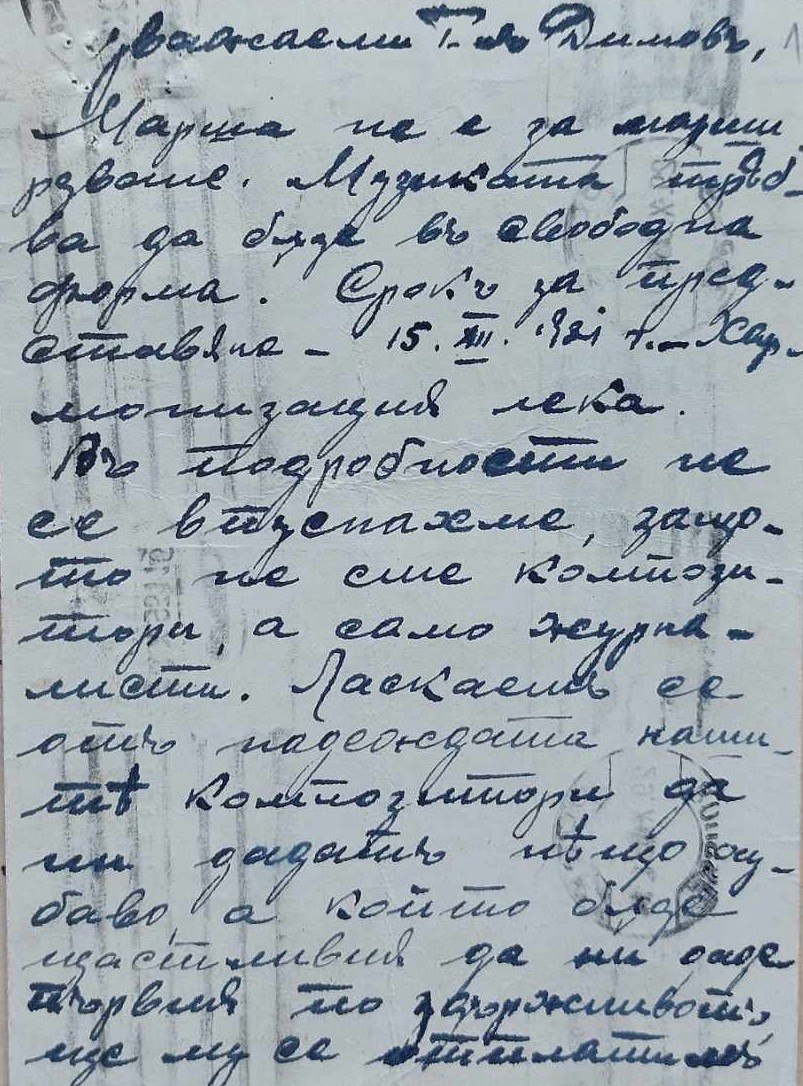 Уважаеми Г-нъ Димовъ,
Марша не е за марши
руване. Музиката трѣб-
ва да бѫде въ свободна
форма. Срокъ за пред-
ставяне - 15. XII. 921 г. - Хар-
монизация лека.
Въ подробности не
се впуснахме, защо-
то не сме компози-
тори, а само журна-
листи. Ласкаемъ се
отъ надеждата наши-
тѣ композитори да
ни дадатъ нѣщо ху-
баво, а който бѫде
щастливия да ни даде
първия по
ще му се отплатимъ